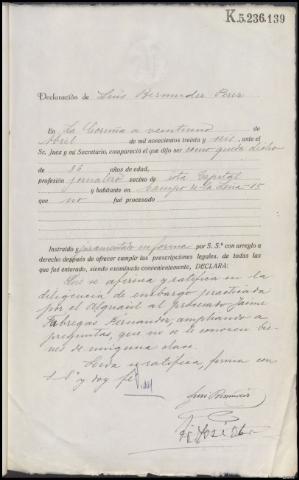 K.5.236.139
Declaración de Luis Bermudez Perez
En La Coruña a veintiuno de
Abril de mil novecientos treinta y seis, ante el
Sr. Juez y mi Secretario, compareció el que dijo ser como queda dicho
de 36 años de edad,
profesión jornalero vecino de esta Capital
y habitante en Campo de la Leña-15
que no fué procesado
Instruído y juramentado en forma por S. S.ª con arreglo a
derecho después de ofrecer cumplir las prescripciones legales, de todas las
que fué enterado, siendo examinado convenientemente, DECLARA:
Que se afirma y ratifica en la
diligencia de embargo practicada
por el Alguacil al procesado Jaime
Fabregas Fernandez, ampliando a
preguntas, que no se le conocen bie-
nes de ninguna clase.
Leida se ratifica, firma con
S. Sª y doy fé.
Luis Bermudez